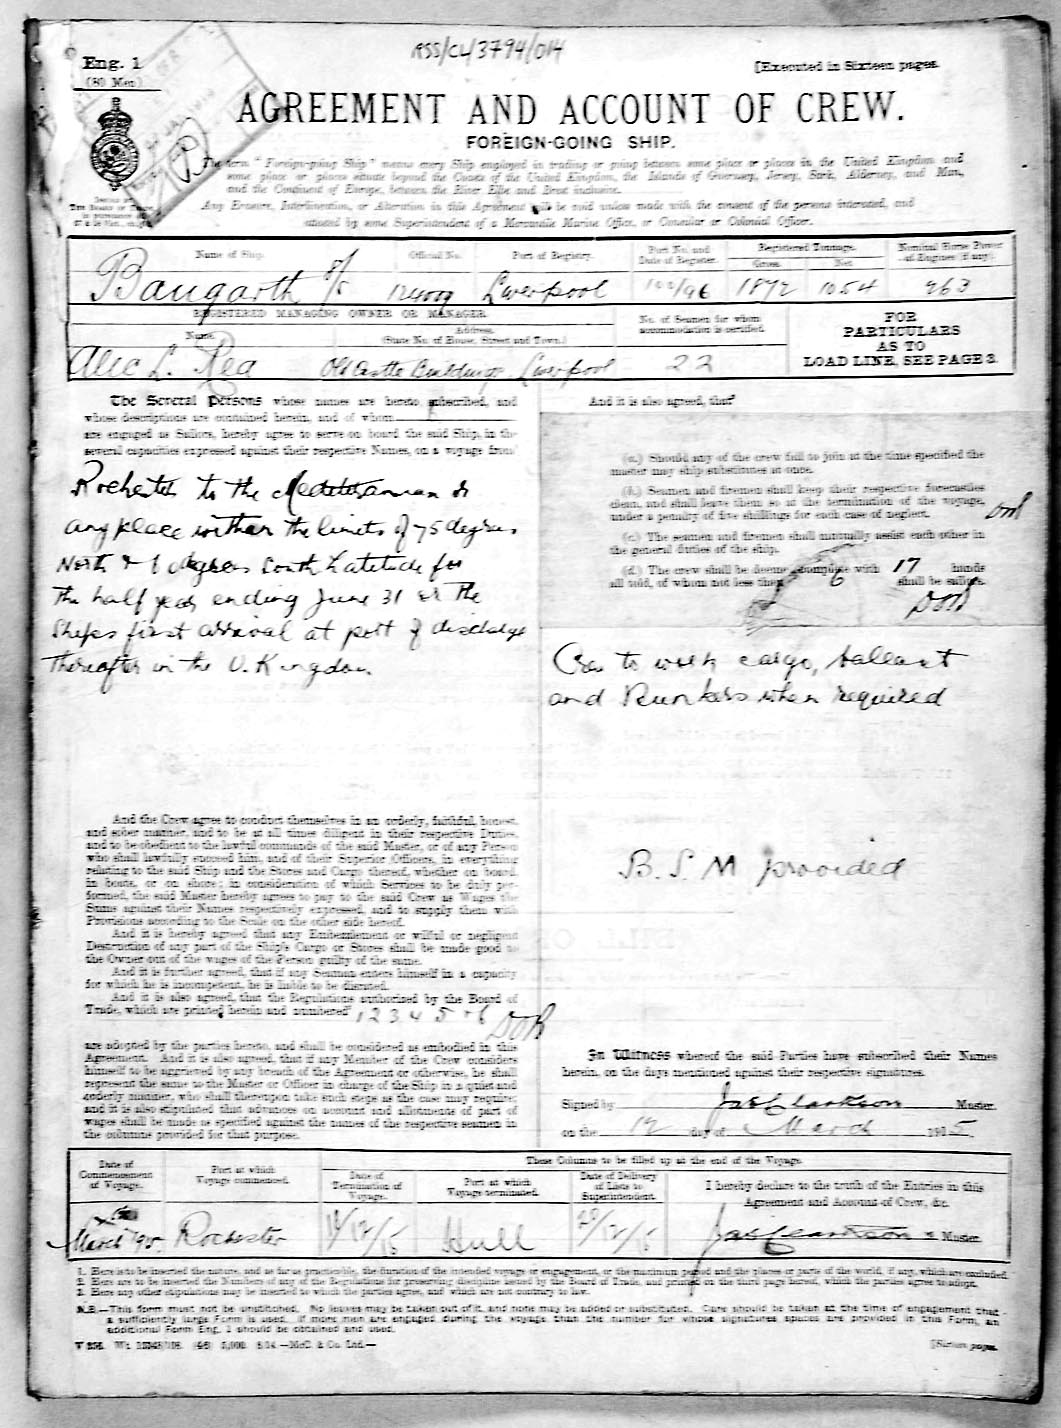 RSS/CL/3794/014
Eng. 1
(80 Men)
[Executed in Sixteen pages.
AGREEMENT AND ACCOUNT OF CREW.
FOREIGN-GOING SHIP.
The term "Foreign-going Ship" means every Ship employed in trading or going between some place or places in the United Kingdom and
some place or places situate beyond the Coasts of the United Kingdom, the Islands of Guernsey, Jersey, Sark, Alderney, and Man,
and the Continent of Europe, between the River Elbe and Brest inclusive.
Any Erasure, Interlineation, or Alteration in this Agreement will be void unless made with the consent of the persons interested, and
attested by some Superintendent of a Mercantile Marine Office, or Consular or Colonial Officer.
Name of Ship. Official No. Port of Registry. Port No. and Date of Register. Registered Tonnage. Gross. Net. Nominal Horse Power of Engines (if any).
Bangarth S/S Liverpool 1872 1054 263
REGISTERED MANAGING OWNER OR MANAGER.
Name. Address. (State No. of House, Street and Town.)
No. of Seamen for whom accommodation is certified.
FOR PARTICULARS AS TO LOAD LINE, SEE PAGE 3.
Alec L. Rea Old Castle Buildings Liverpool 22
The Several Persons whose names are hereto subscribed, and
whose descriptions are contained herein, and of whom
are engaged as Sailors, hereby agree to serve on board the said Ship, in the
several capacities expressed against their respective Names, on a voyage from
Rochester to the Mediterranean &
any place within the limits of 75 degrees
North & 1 degrees South Latitude for
the half year ending June 31 or the
Ships first arrival at port of discharge
thereafter in the U. Kingdom.
And the Crew agree to conduct themselves in an orderly, faithful, honest,
and sober manner, and to be at all times diligent in their respective Duties,
and to be obedient to the lawful commands of the said Master, or of any Person
who shall lawfully succeed him, and of their Superior Officers, in everything
relating to the said Ship and the Stores and Cargo thereof, whether on board,
in boats, or on shore; in consideration of which Services to be duly per-
formed, the said Master hereby agrees to pay to the said Crew as Wages the
Sums against their Names respectively expressed, and to supply them with
Provisions according to the Scale on the other side hereof.
And it is hereby agreed that any Embezzlement or wilful or negligent
Destruction of any part of the Ship's Cargo or Stores shall be made good to
the Owner out of the wages of the Person guilty of the same.
And it is further agreed, that if any Seaman enters himself in a capacity
for which he is incompetent, he is liable to be disrated.
And it is also agreed, that the Regulations authorised by the Board of
Trade, which are printed herein and numbered 1 2 3 4 5 & 6
are adopted by the parties hereto, and shall be considered as embodied in this
Agreement. And it is also agreed, that if any Member of the Crew considers
himself to be aggrieved by any breach of the Agreement or otherwise, he shall
represent the same to the Master or Officer in charge of the Ship in a quiet and
orderly manner, who shall thereupon take such steps as the case may require;
and it is also stipulated that advances on account and allotments of part of
wages shall be made as specified against the names of the respective seamen in
the columns provided for that purpose.
And it is also agreed, that
(a.) Should any of the crew fail to join at the time specified the
master may ship substitutes at once.
(b.) Seamen and firemen shall keep their respective forecastles
clean, and shall leave them so at the termination of the voyage,
under a penalty of five shillings for each case of neglect.
(c.) The seamen and firemen shall mutually assist each other in
the general duties of the ship.
(d.) The crew shall be deemed complete with 17 hands
all told, of whom not less than 6 shall be sailors.
Crew to work cargo, ballast
and Bunkers when required
B. S. M provided
In Witness whereof the said Parties have subscribed their Names
herein, on the days mentioned against their respective signatures.
Signed by Jas Clarkson Master.
on the 12 day of March 1915.
Date of Commencement of Voyage. Port at which Voyage commenced. These Columns to be filled up at the end of the Voyage.
Date of Termination of Voyage. Port at which Voyage terminated. Date of Delivery of Lists to Superintendent. I hereby declare to the truth of the Entries in this Agreement and Account of Crew, &c.
March 1915. Rochester Hull 20/12/15 Jas Clarkson Master.
1. Here is to be inserted the nature, and as far as practicable, the duration of the intended voyage or engagement, or the maximum period and the places or parts of the world, if any, which are excluded.
2. Here are to be inserted the Numbers of any of the Regulations for preserving discipline issued by the Board of Trade, and printed on the third page hereof, which the parties agree to adopt.
3. Here any other stipulations may be inserted to which the parties agree, and which are not contrary to law.
N.B.—This form must not be unstitched. No leaves may be taken out of it, and none may be added or substituted. Care should be taken at the time of engagement that
a sufficiently large Form is used. If more men are engaged during the voyage than the number for whose signatures spaces are provided in this Form, an
additional Form Eng. 1 should be obtained and used.
[Sixteen pages.